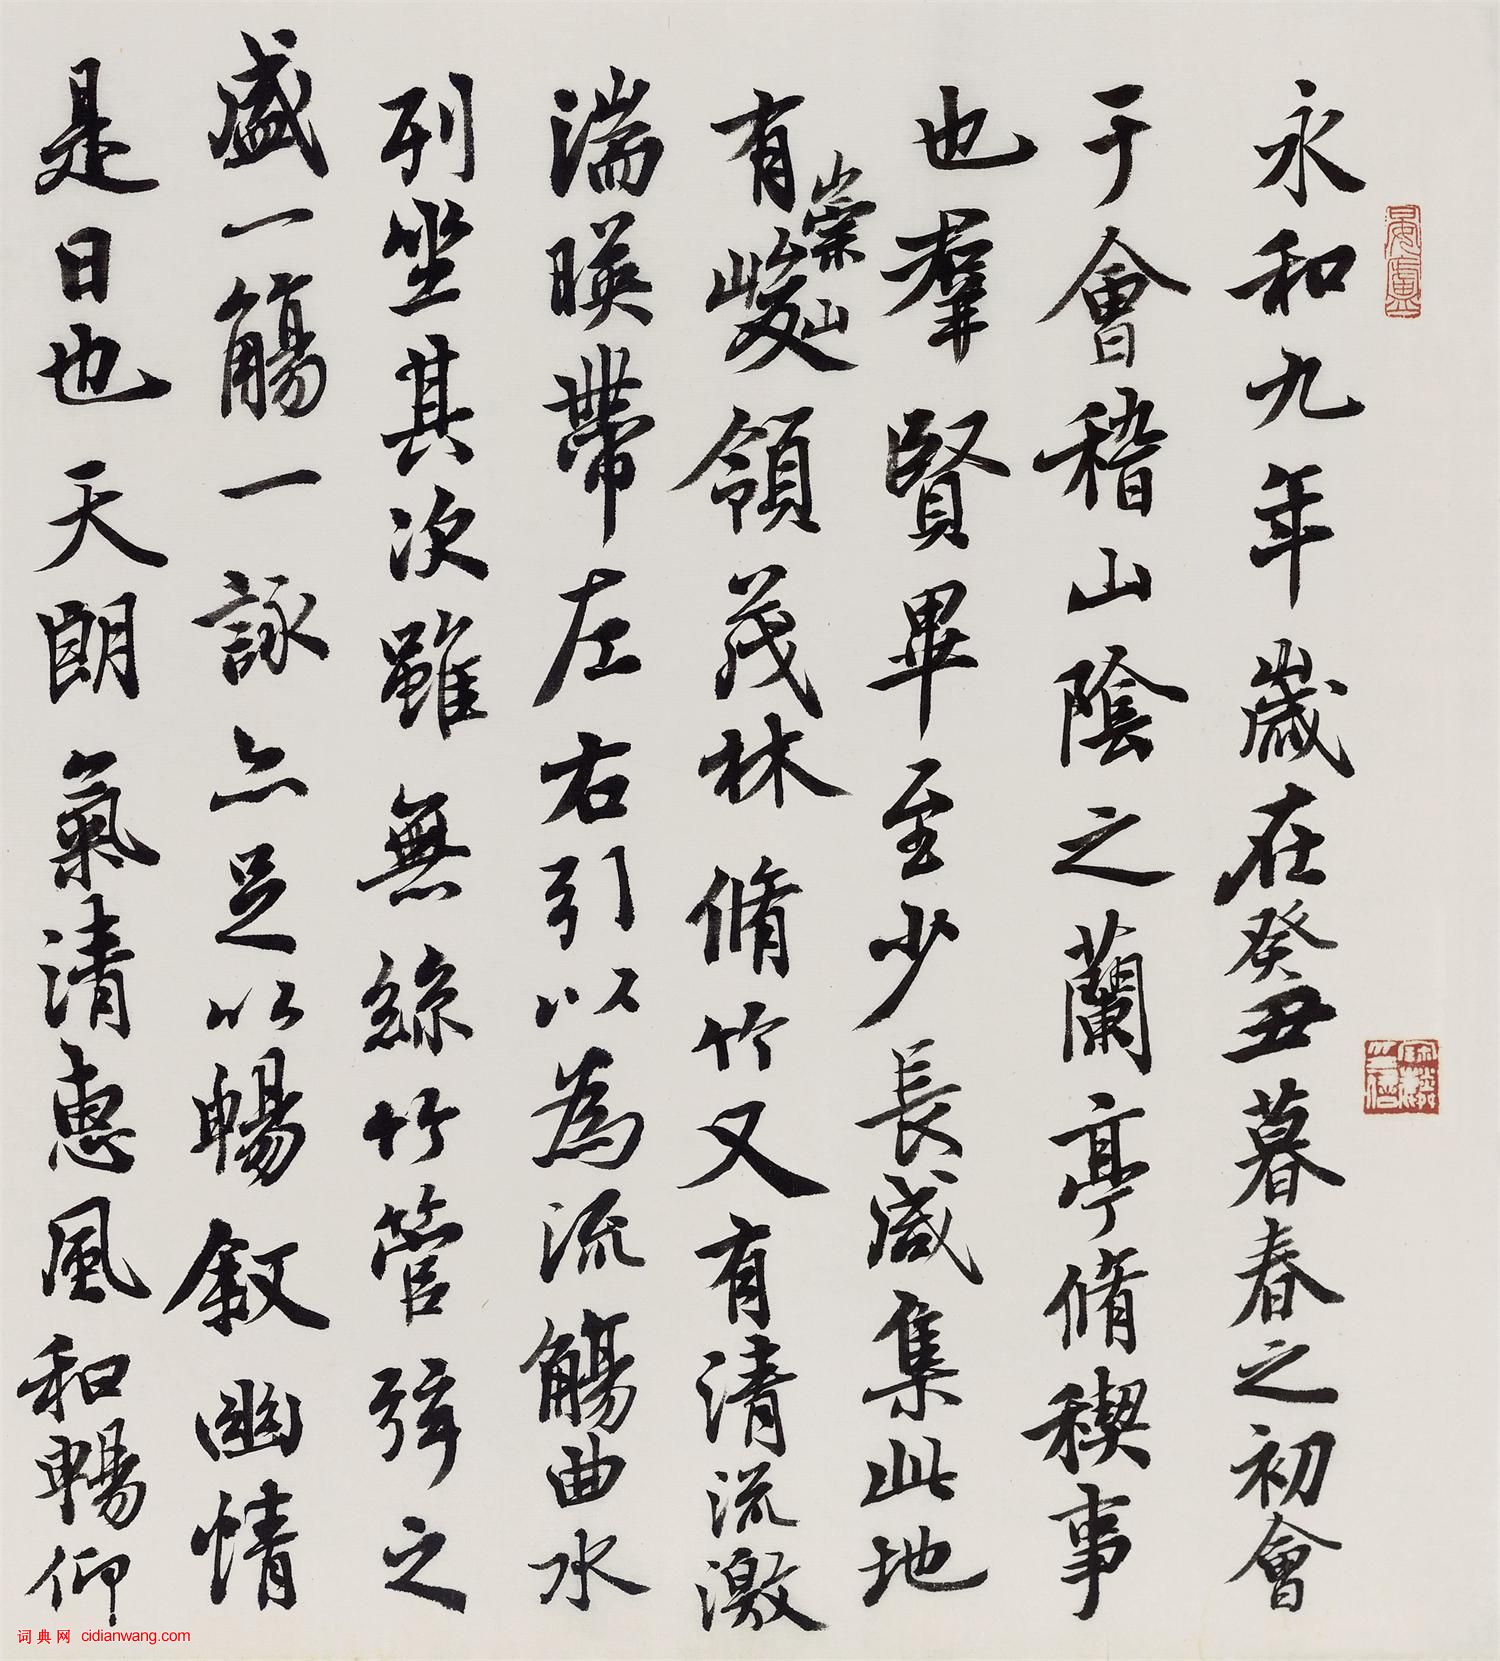 永和九年歲在癸丑暮春之初會
于會稽山陰之蘭亭脩稧事
也羣賢畢至少長咸集此地
有崇山峻領茂林脩竹又有清流激
湍暎帶左右引以為流觴曲水
列坐其次雖無絲竹管弦之
盛一觴一詠亦足以暢敘幽情
是日也天朗氣清惠風和暢仰
词典网 cidianwang.com